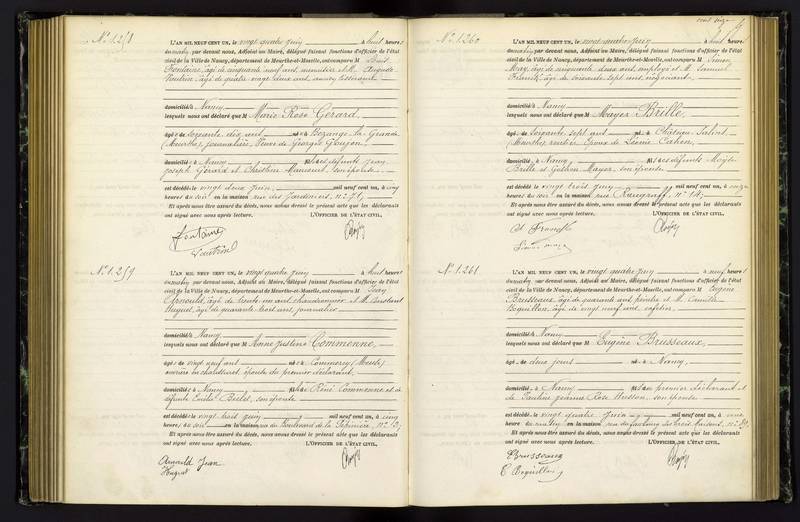 N° 1.258
L'AN MIL NEUF CENT UN, le vingt quatre juin à huit heures
du matin par devant nous, Adjoint au Maire, délégué faisant fonctions d'officier de l'état
civil de la Ville de Nancy, département de Meurthe-et-Moselle, ont comparu M Louis
Fontaine, âgé de cinquante neuf ans, menuisier et M. Auguste
âgé de quatre vingt deux ans,
domicilié à Nancy
lesquels nous ont déclaré que M Marie Rose Gérard,
âgé e de soixante dix ans né e à Bezange la Grande
(Meurthe), journalière, Veuve de Georges Goujon.
domicilié e à Nancy fille des défunts Jean
Joseph Gérard et Christine son épouse
est décédé e le vingt deux juin, mil neuf cent un, à cinq
heures du soir en la maison rue des Jardiniers, n° 71;
Et après nous être assuré du décès, nous avons dressé le présent acte que les déclarants
ont signé avec nous après lecture. L'OFFICIER DE L'ÉTAT CIVIL,
Fontaine
N° 1.259
L'AN MIL NEUF CENT UN, le vingt quatre juin à huit heures
du matin par devant nous, Adjoint au Maire, délégué faisant fonctions d'officier de l'état
civil de la Ville de Nancy, département de Meurthe-et-Moselle, ont comparu M Jean
Arnould, âgé de trente un ans, chaudronnier et M.
âgé de quarante trois ans, journalier
domicilié à Nancy
lesquels nous ont déclaré que M Anne Justine Commenne,
âgé e de vingt neuf ans né e à Commercy (Meuse)
ouvrière en chaussures, épouse du premier déclarant,
domicilié e à Nancy fille de René Commenne et de
défunte Emilie son épouse
est décédé e le vingt trois juin mil neuf cent un, à cinq
heures du soir en la maison rue du Boulevard de la Pépinière, n°
Et après nous être assuré du décès, nous avons dressé le présent acte que les déclarants
ont signé avec nous après lecture. L'OFFICIER DE L'ÉTAT CIVIL,
Arnould Jean
cent seize
N° 1.260
L'AN MIL NEUF CENT UN, le vingt quatre juin à huit heures
du matin par devant nous, Adjoint au Maire, délégué faisant fonctions d'officier de l'état
civil de la Ville de Nancy, département de Meurthe-et-Moselle, ont comparu M Simon
May, âgé de cinquante deux ans, employé et M. Samuel
Franck, âgé de soixante sept ans, négociant
domicilié à Nancy
lesquels nous ont déclaré que M Mayer Brille,
âgé de soixante sept ans né à Château Salins
(Meurthe), rentier, époux de Léonie Cahen,
domicilié à Nancy fils des défunts Moÿse
Brille et Mayer, son épouse
est décédé le vingt trois juin mil neuf cent un, à onze
heures du soir en la maison rue Raugraff, n° 14;
Et après nous être assuré du décès, nous avons dressé le présent acte que les déclarants
ont signé avec nous après lecture. L'OFFICIER DE L'ÉTAT CIVIL,
S Franck
Simon may
N° 1.261
L'AN MIL NEUF CENT UN, le vingt quatre juin à neuf heures
du matin par devant nous, Adjoint au Maire, délégué faisant fonctions d'officier de l'état
civil de la Ville de Nancy, département de Meurthe-et-Moselle, ont comparu M Eugène
Brusseaux, âgé de quarante ans, peintre et M. Camille
Boquillon, âgé de vingt neuf ans, cafetier
domicilié à Nancy
lesquels nous ont déclaré que M Eugène Brusseaux,
âgé de deux jours né à Nancy,
domicilié à Nancy fils du premier déclarant et
de Pauline Jeanne Rose Husson, son épouse
est décédé le vingt quatre juin mil neuf cent un, à une
heure du matin en la maison rue du faubourg des trois maisons, n°
Et après nous être assuré du décès, nous avons dressé le présent acte que les déclarants
ont signé avec nous après lecture. L'OFFICIER DE L'ÉTAT CIVIL,
Brusseaux
C Boquillon